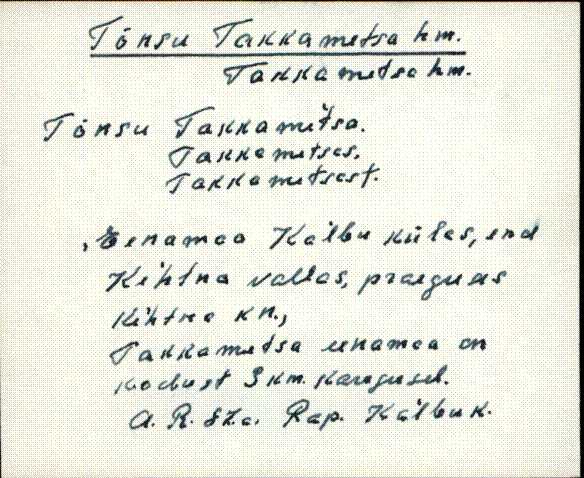 Tõnsu Takkametsa hm.
Takkametsa hm.
Tõnsu Takkametsa.
Takkametsas,
Takkametsast.
, Eenamaa Kälbu külas, end
Kihtna vallas, praeguses
Kihtna kn.,
Takkametsa eenamaa on
kodust 3 km. kaugusel.
A. R. 82a. Rap. Kälbu k.